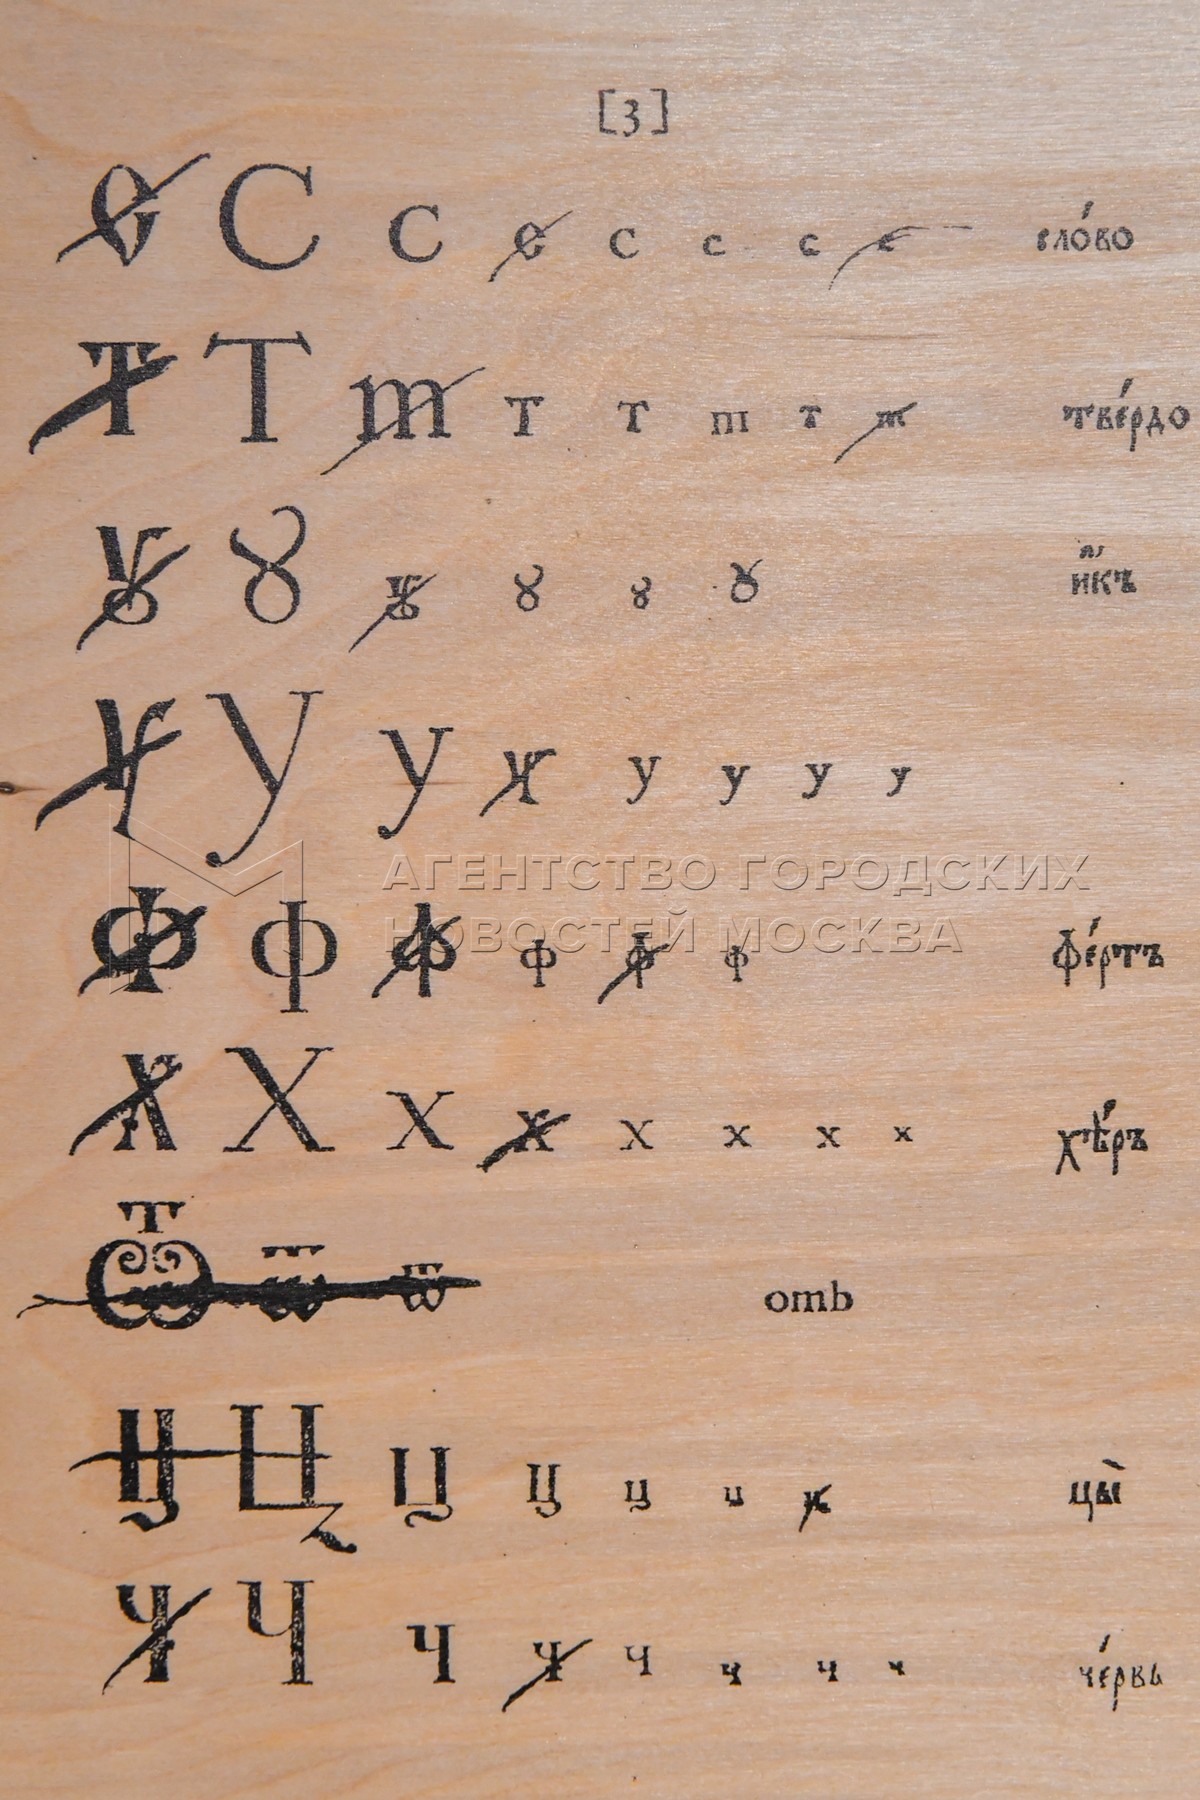 [3]
Ѻ С С С С с с с сло́во
Т Т т Т Т т т т тве́рдо
Ꙋ Ꙋ ꙋ ꙋ ꙋ ꙋ и҆́къ
У У У У У у у у
АГЕНТСТВО ГОРОДСКИХ
НОВОСТЕЙ МОСКВА
Ф Ф Ф Ф Ф ф фе́ртъ
Х Х Х Х Х х х х хѣ́ръ
Ѿ ѿ ѿ отъ
Ц Ц Ц Ц ц ц ц цы̀
Ч Ч Ч Ч Ч ч ч ч че́рвь